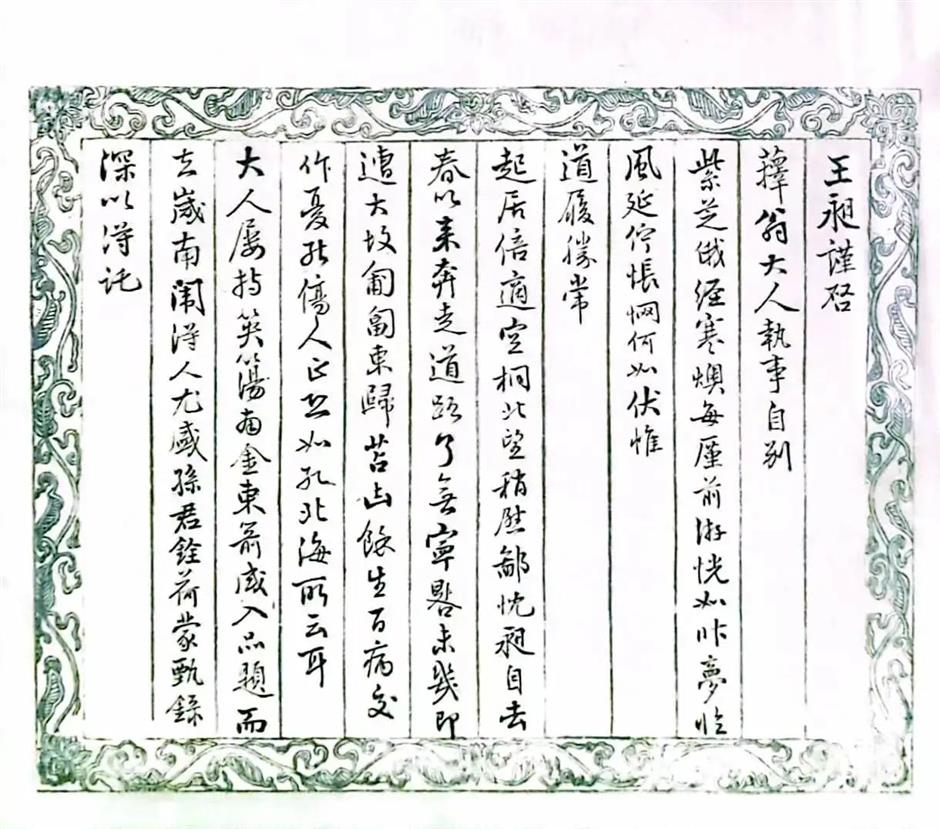 王昶謹啓
蘀翁大人執事自別
紫芝俄經寒燠每厪前游恍如昨夢臨
風延佇悵惘何如伏惟
道履勝常
起居倍適空桐北望稍慰鄙忱昶自去
春以来奔走道路了無寧晷未幾即
遭大故匍匐東歸苫凷餘生百病交
作憂能傷人正如孔北海所云耳
大人屢持英簜南金東箭咸入品題而
去歲南闈得人尤盛孫君銓荷蒙甄錄
深以得託